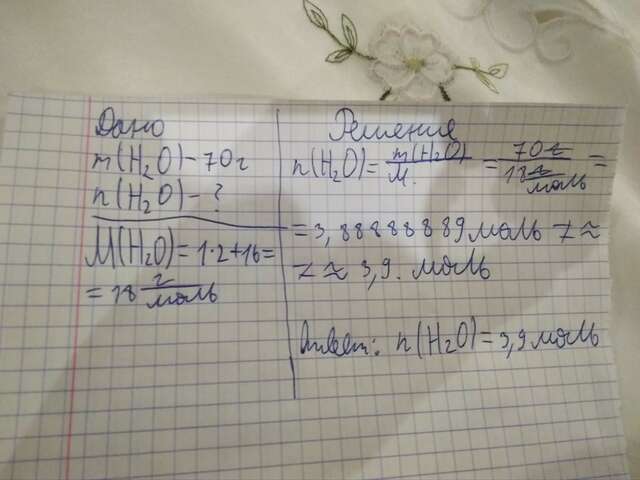 Дано
m(H₂O) – 70 г
n(H₂O) – ?
M(H₂O) = 1·2+16=
= 18 г/моль
Решение
n(H₂O) = m(H₂O)/M = 70 г/18 г/моль =
= 3,88888889 моль ≈
≈ 3,9. моль
Ответ: n(H₂O) = 3,9 моль